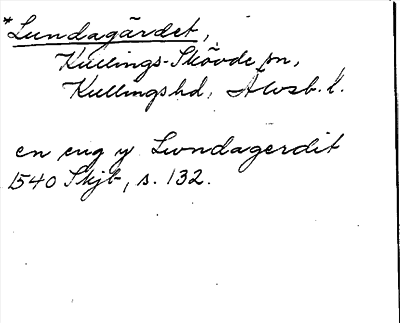 *Lundagärdet,
Kullings-Skövde sn,
Kullingshd, Älvsb. l.
en eng y Lwndagerdit
1540 Skjb, s. 132.